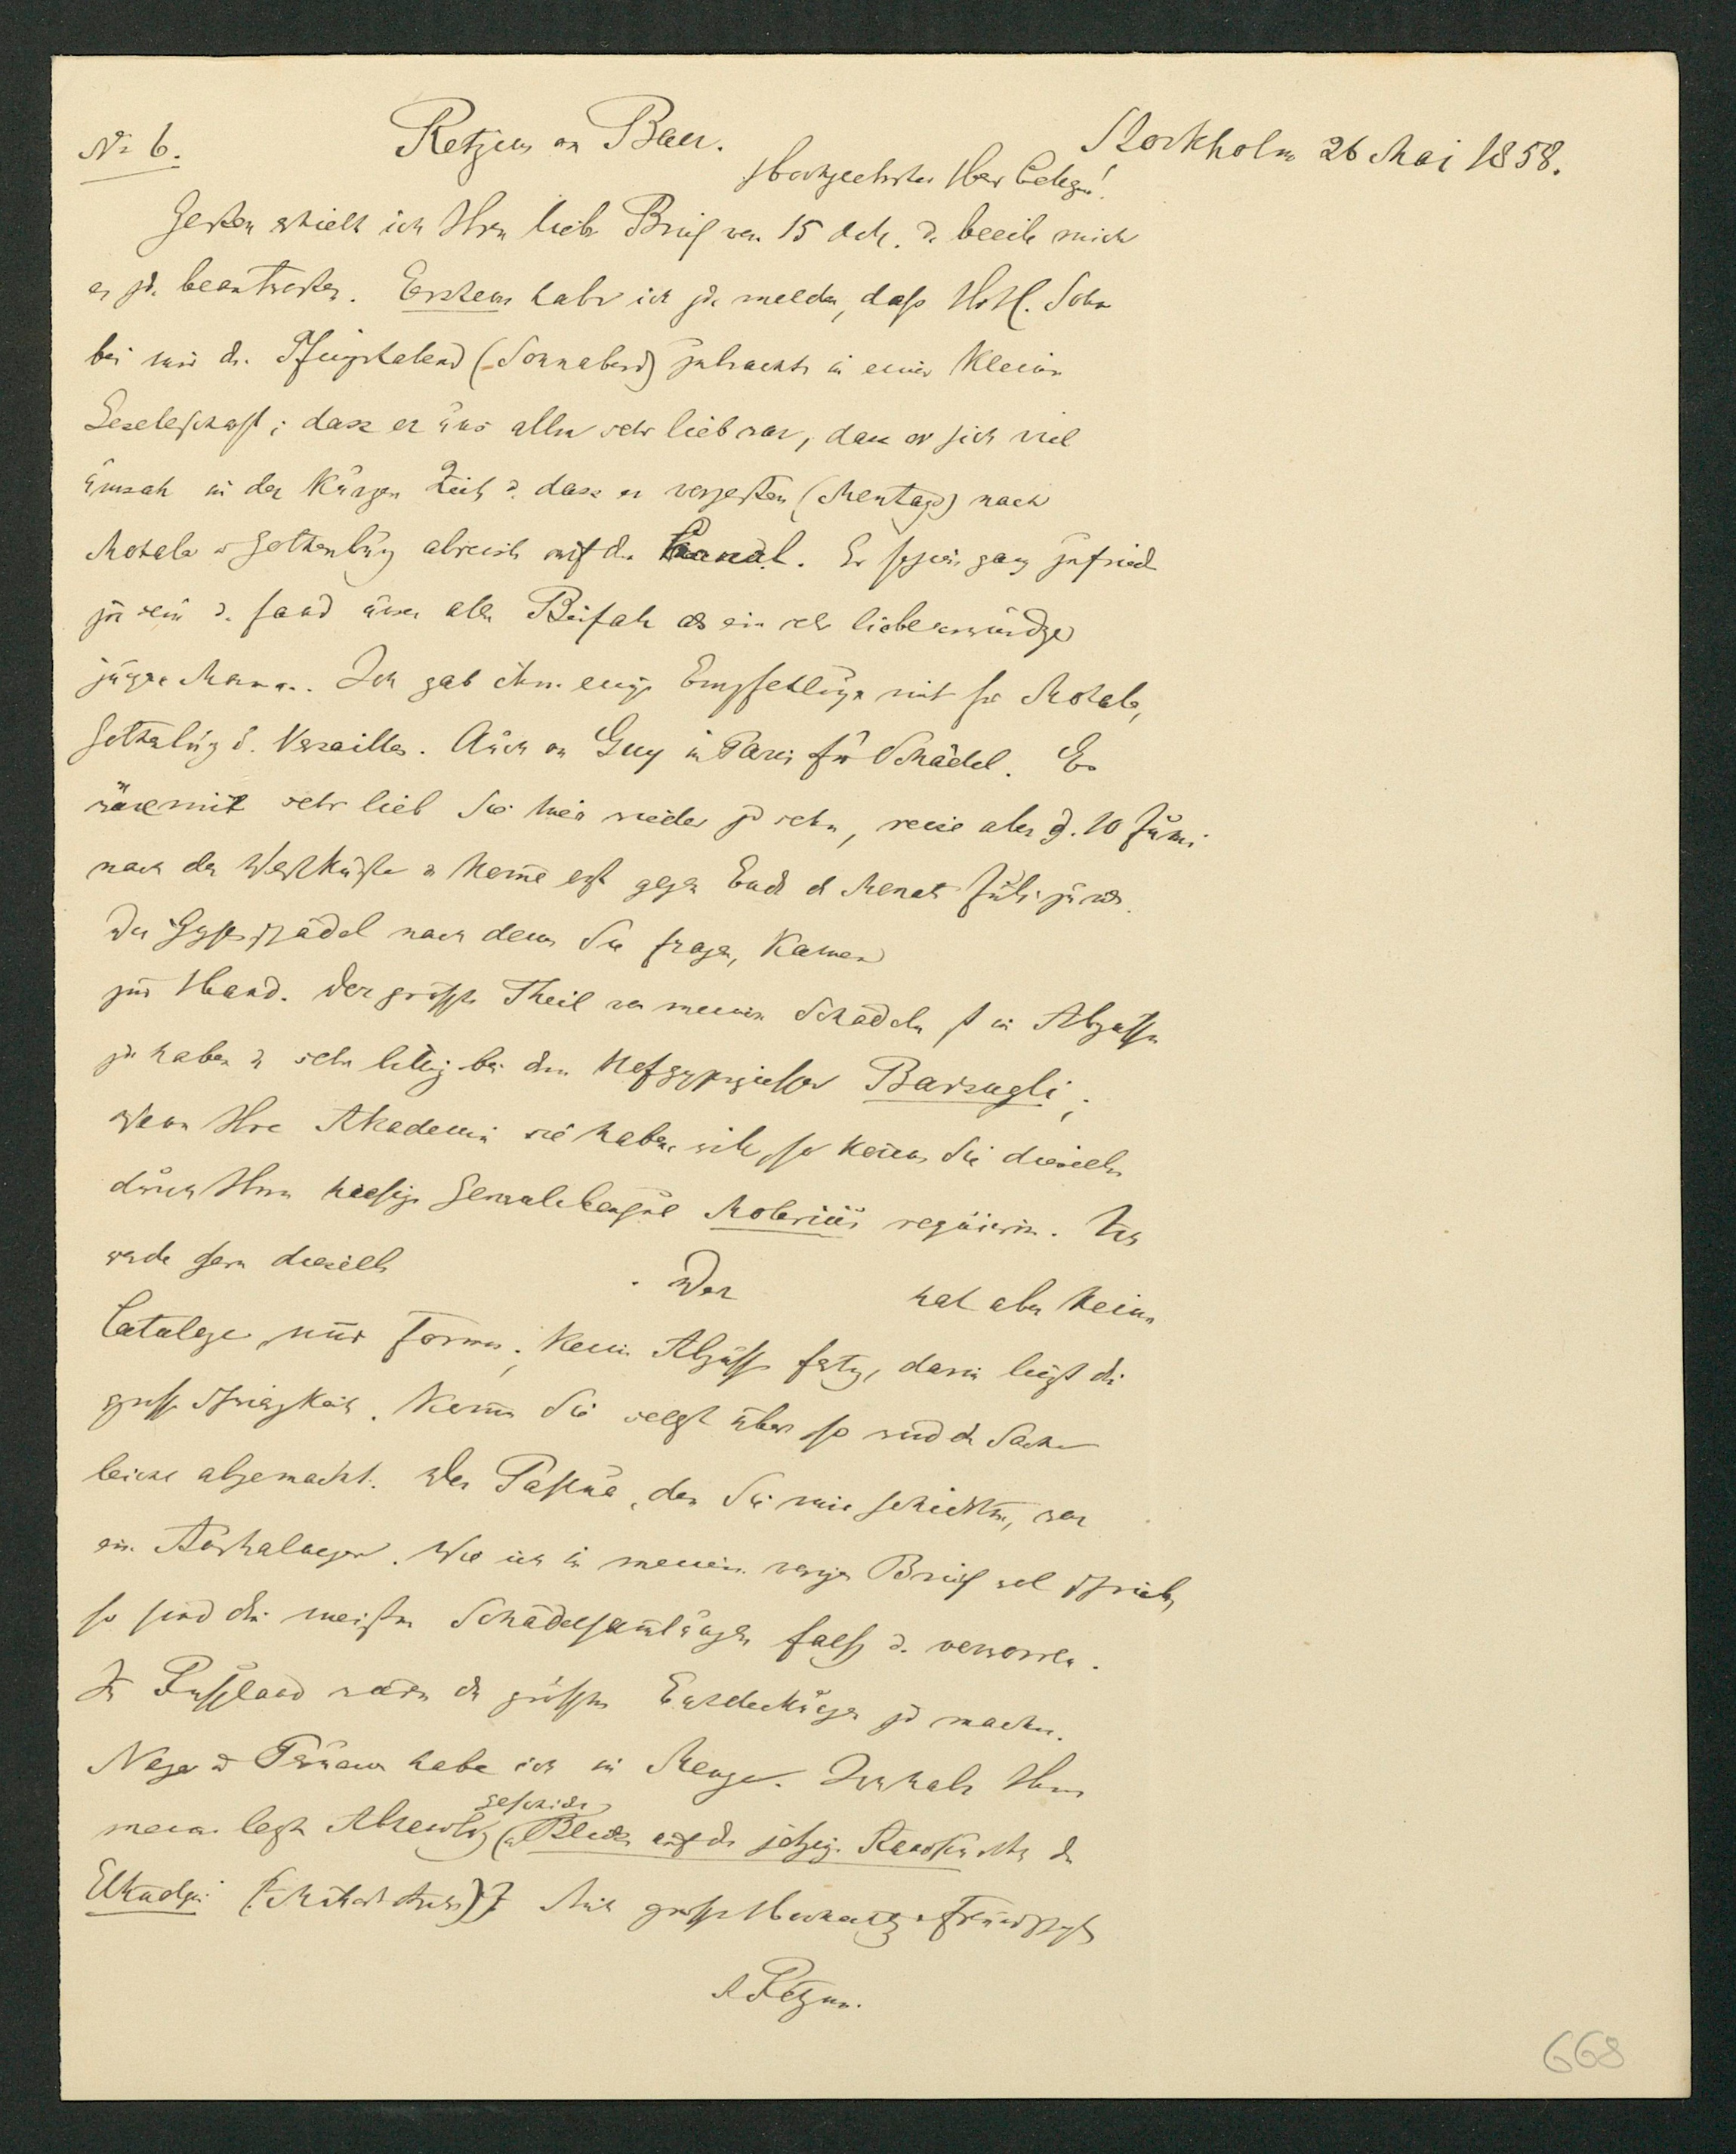 No 6. Retzius an Baer. Stockholm 26 Mai 1858.
Hochgeehrter Herr College!
Gestern erhielt ich Ihren lieben Brief von 15 d. beeile mich
es zu beantworten. Erstens habe ich zu melden, dass Ihr H. Sohn
bei mir den Pfingstabend (Sonnabend) zubrachte in einer kleinen
Gesellschaft; dass er uns allen sehr lieb war, dass er sich viel
umsah in der kurzen Zeit u. dass er vorgestern (Montags) nach
Motala u Gothenburg abreiste auf dem Kanal. Er schien ganz zufrieden
zu sein u. fand unser aller Beifall als ein sehr liebenswürdiger
junger Mann. Ich gab ihm einige Empfehlungen mit für Motala,
Gothenburg u. Versailles. Auch an Guy in Paris für Schädel. Es
wäre mir sehr lieb Sie hier wieder zu sehen, reise aber d. 10 Juni
nach der Westküste u komme erst gegen Ende des Monats Juli zurück.
Der Gypsschädel nach dem Sie fragen, kamen
zur Hand. Der grösste Theil von meinen Schädeln ist in Abgüssen
zu haben u sehr billig bei dem Hofgypsgiesser Barsugli;
wenn Ihre Akademie sie haben will, so können Sie dieselben
durch Ihren hiesigen Generalconsul Moberiüs requiriren. Ich
werde gern dieselbe . Der hat aber keinen
Cataloge, nur Formen; keine Abgüsse fertig, darin liegt die
grosse Schwierigkeit. Kommen Sie selbst über so wird die Sache
leicht abgemacht. Der Papua, den Sie mir schickten, war
ein Australneger. Wie ich in meinem vorigen Brief wol schrieb,
so sind die meisten Schädelsammlungen falsch u. verworren.
In Russland wären die grössten Entdeckungen zu machen.
Neger u Peruaner habe ich in Menge. Ich habe Ihnen
meine letzte Abhandlung geschickt (Blick auf den jetzigen Standpunkt der
Ethnologie (Müller's Archiv)) Mit grosser Hochachtung u Freundschaft
A Retzius.
668